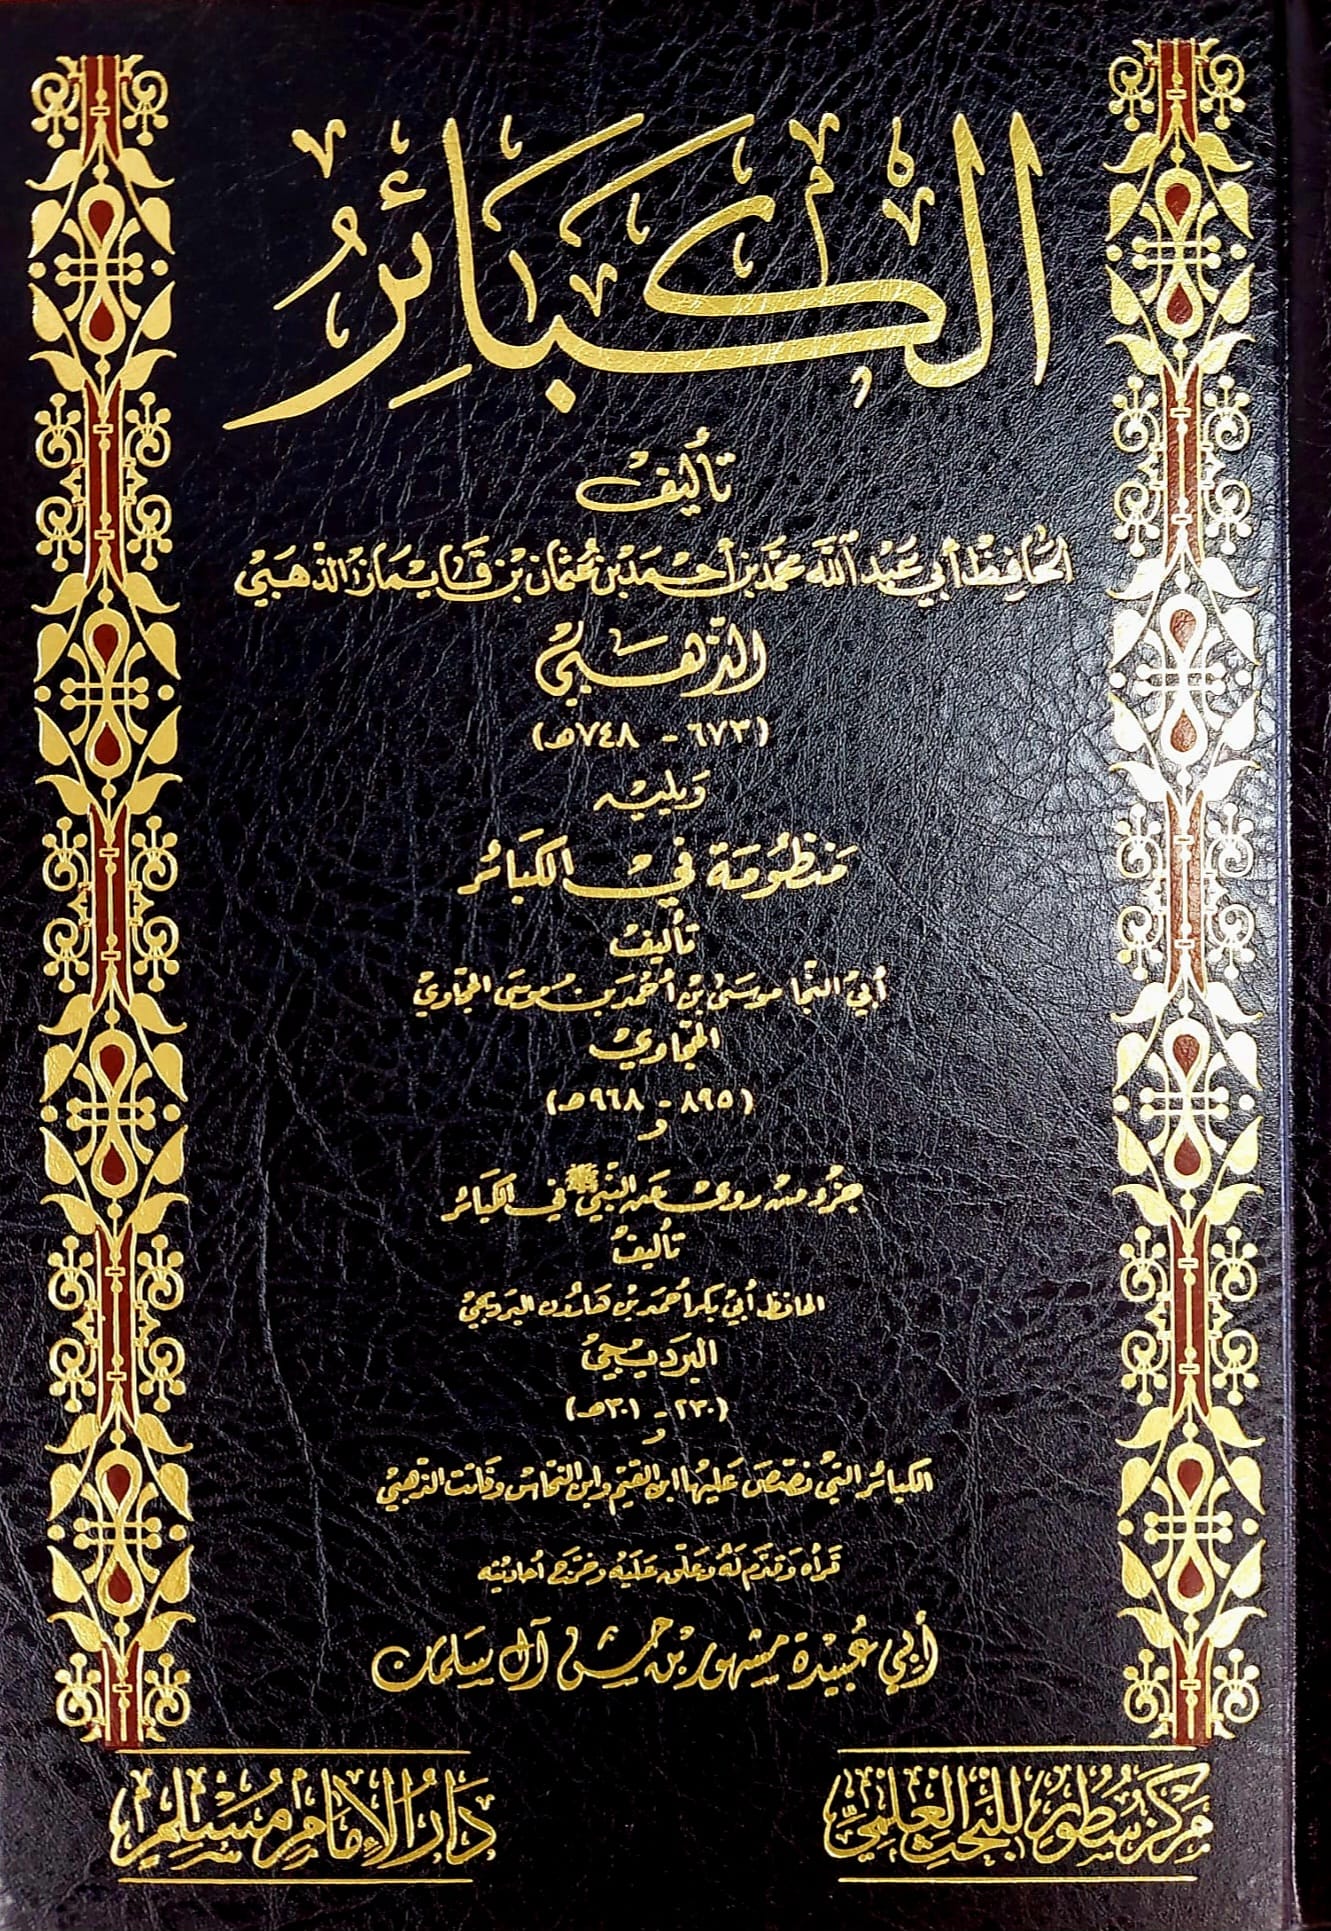 الكبائر
تأليف
الحافظ أبي عبد الله محمد بن أحمد بن عثمان بن قايماز الذهبي
الذهبي
(٦٧٣ - ٧٤٨هـ)
ويليه
منظومة في الكبائر
تأليف
أبي النجا موسى بن أحمد بن موسى الحجاوي
الحجاوي
(٨٩٥ - ٩٦٨هـ)
و
جزء من روى عن النبي ﷺ في الكبائر
تأليف
الحافظ أبي بكر أحمد بن هارون البرديجي
البرديجي
(٢٣٠ - ٣٠١هـ)
و
الكبائر التي نصص عليها ابن القيم وابن النحاس وفاتت الذهبي
قرأه وقدم له وعلق عليه وخرج أحاديثه
أبي عبيدة مشهور بن حسن آل سلمان
مركز سطور للبحث العلمي
دار الإمام مسلم